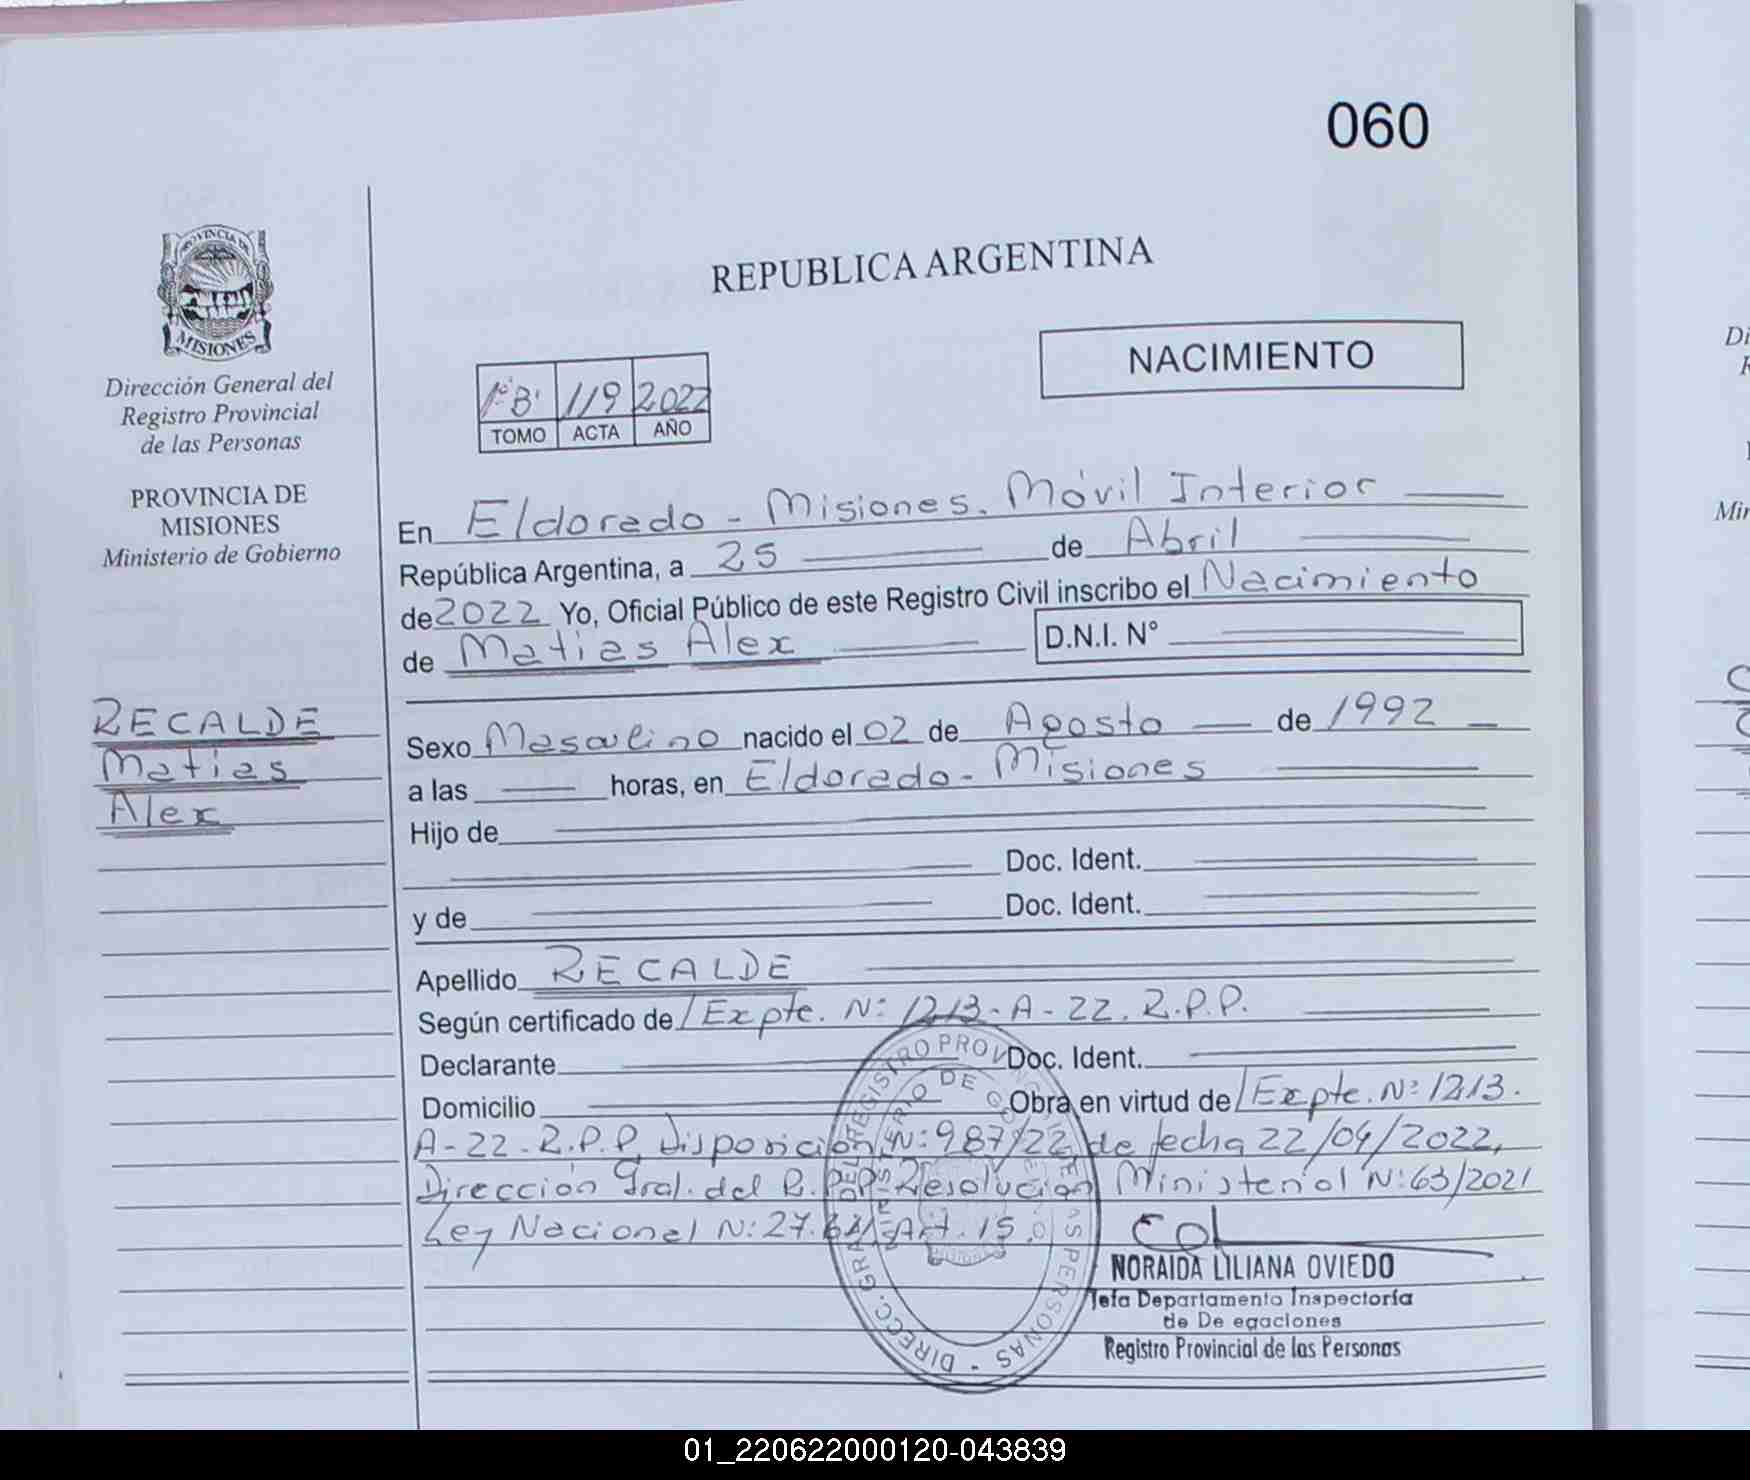 060
PROVINCIA DE
MISIONES
Dirección General del
Registro Provincial
de las Personas
PROVINCIA DE
MISIONES
Ministerio de Gobierno
RECALDE
Matias
Alex
REPUBLICA ARGENTINA
NACIMIENTO
1º "B" 119 2022
TOMO ACTA AÑO
En Eldorado - Misiones. Móvil Interior
República Argentina, a 25 de Abril
de 2022 Yo, Oficial Público de este Registro Civil inscribo el Nacimiento
de Matias Alex D.N.I. N°
Sexo Masculino nacido el 02 de Agosto de 1992
a las horas, en Eldorado - Misiones
Hijo de
Doc. Ident.
y de Doc. Ident.
Apellido RECALDE
Según certificado de Expte. N: 1213-A-22. R.P.P.
Declarante Doc. Ident.
Domicilio Obra en virtud de Expte. N: 1213.
A-22-R.P.P. Disposición N: 987/22 de fecha 22/04/2022,
Dirección Gral. del R.P.P. Resolución Ministerial N: 63/2021
Ley Nacional N: 27. Art. 15.
DIRECC. GRAL. DEL REGISTRO PROVINCIAL DE LAS PERSONAS
MINISTERIO DE GOBIERNO
NORAIDA LILIANA OVIEDO
Jefa Departamento Inspectoría
de De egaciones
Registro Provincial de las Personas
Di
Mir
01_220622000120-043839